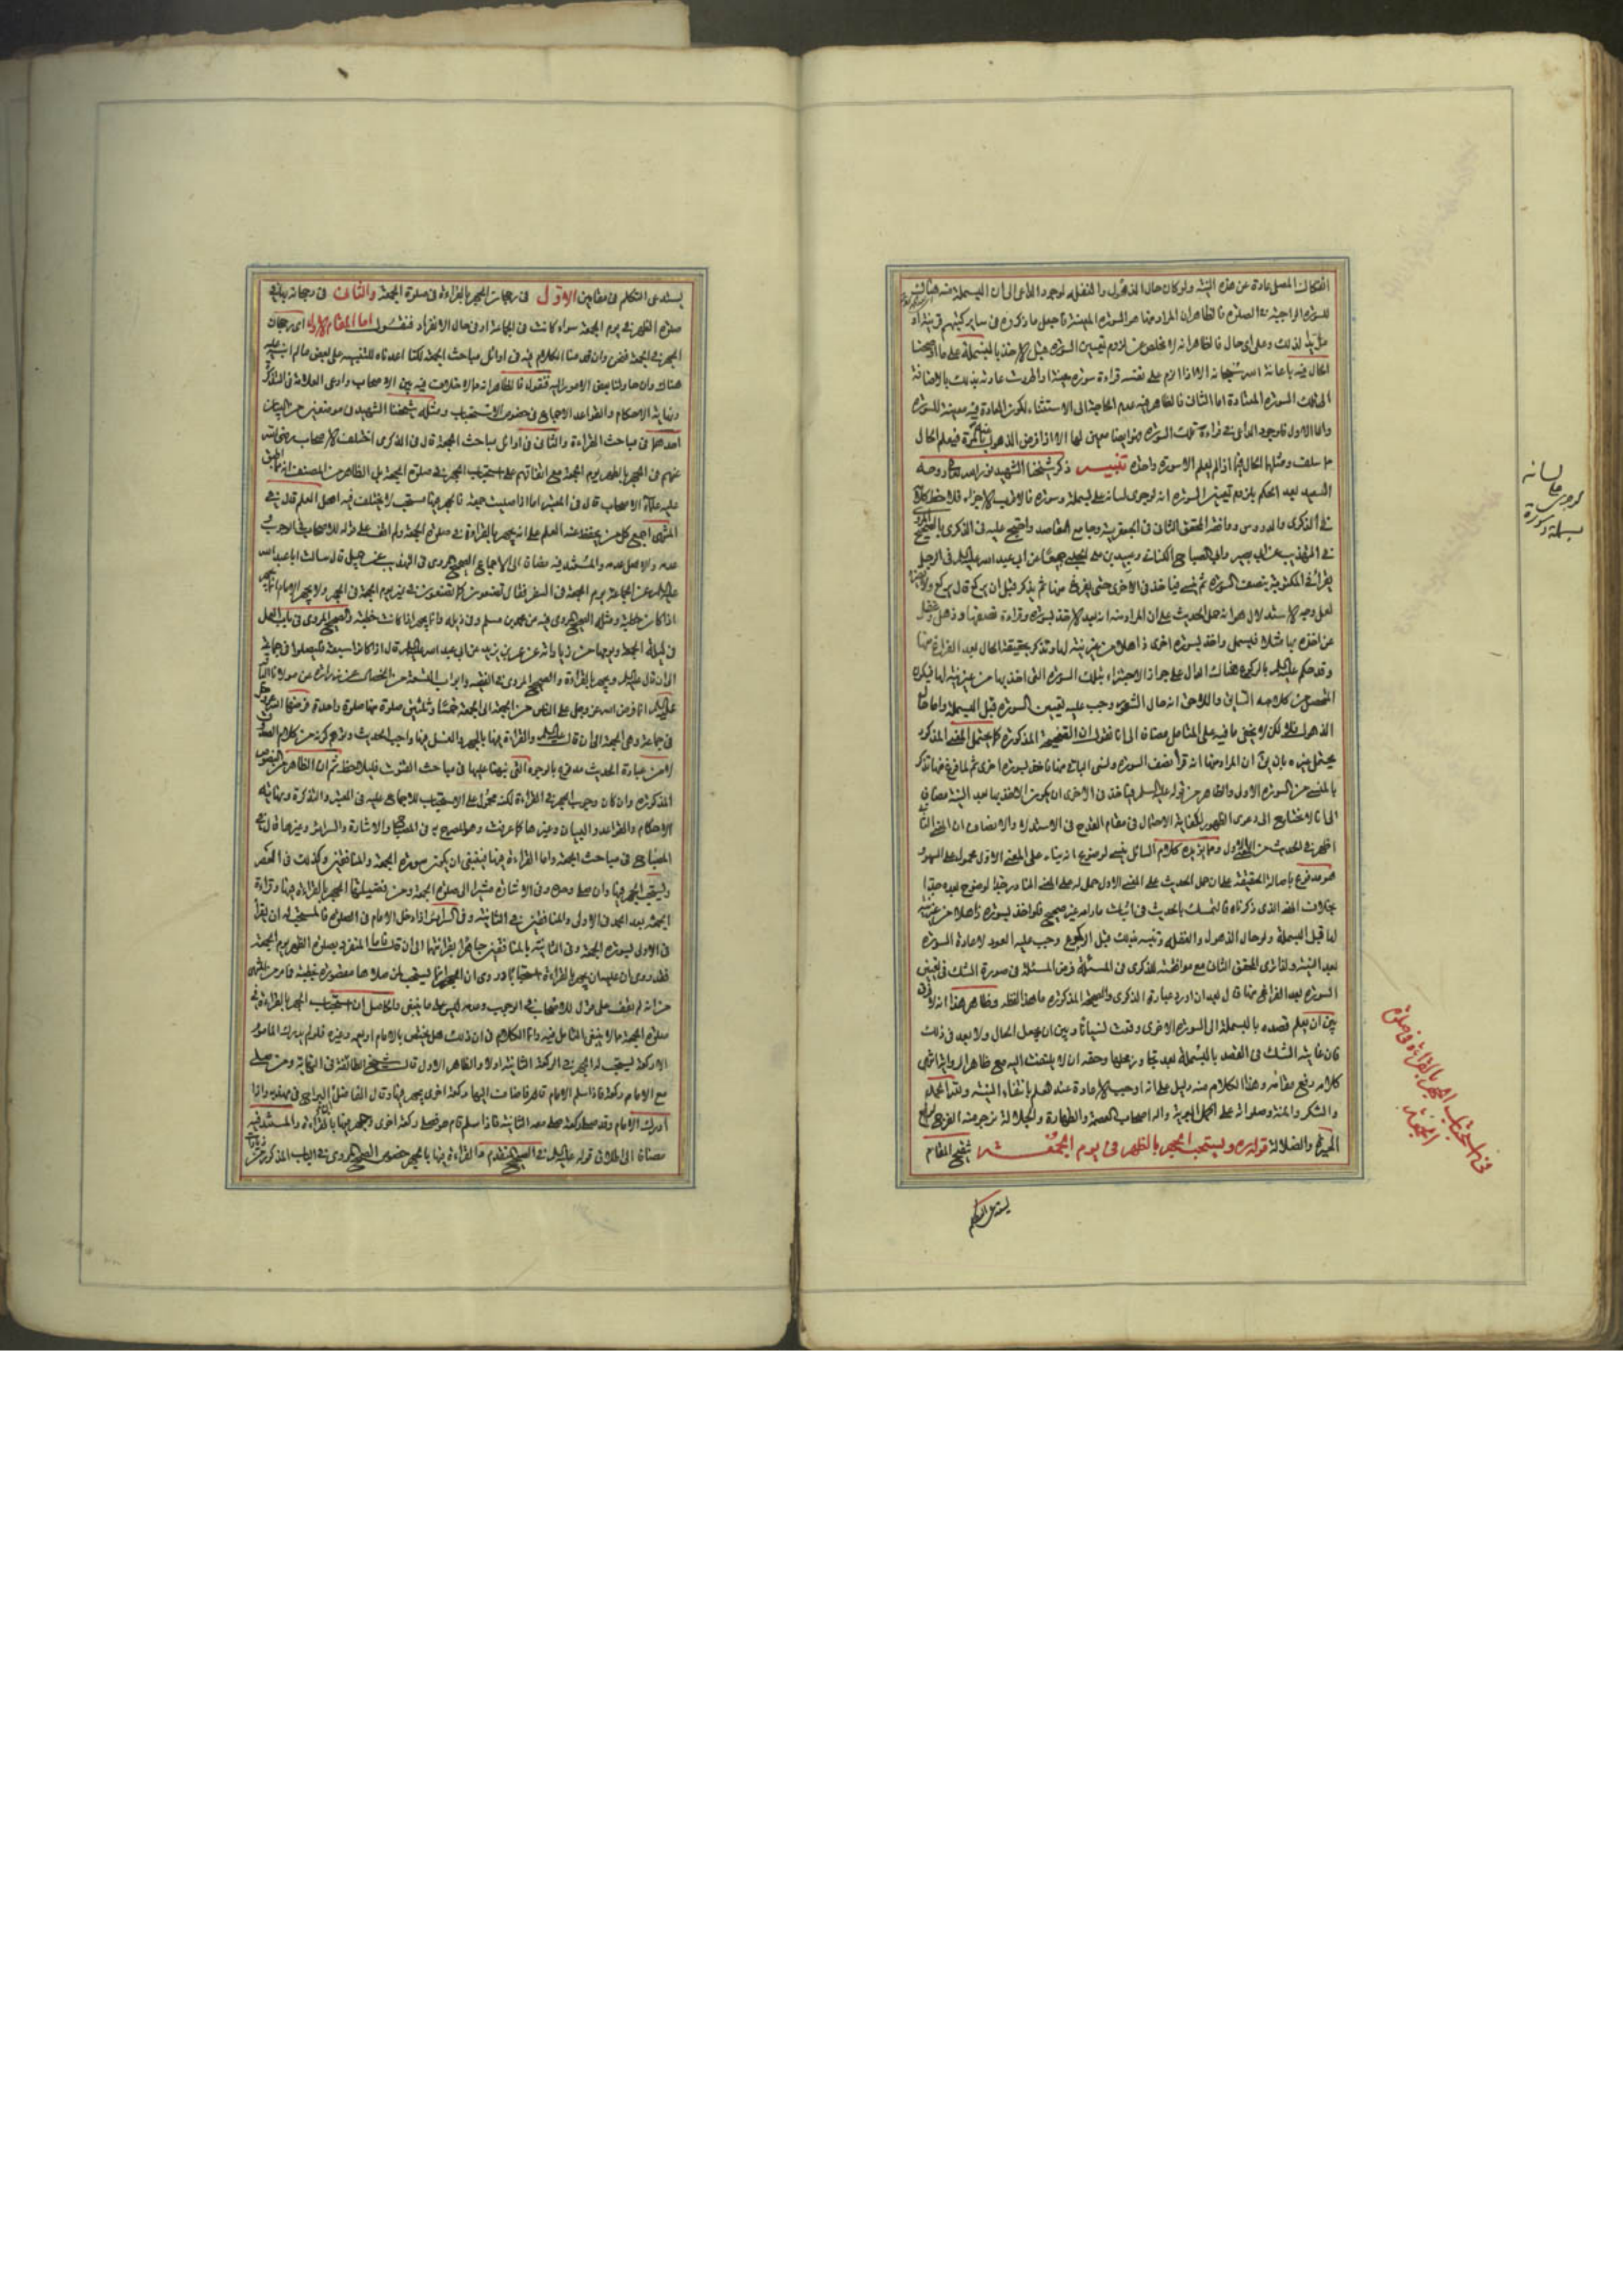 انفكاك المصلى عادة عن هذه النية ولو كان حال الذهول والغفلة لوجود الداعى الى ان البسملة منه هناك
للسورة الواجبة فى الصلوة فالظاهر ان المراد منها هو السورة المعينة فاجعل ما ذكروه فى ساير كتبهم قرينة
لذلك وعلى اى حال فالظاهر انه لا مخلص عن لزوم تعيين السورة قبل الاخذ بالبسملة على ما اوضحنا
الحال فيه باعانة الله سبحانه الا اذا الزم على نفسه قراءة سورة معينة او اطردت عادته بذلك بالاضافة
الى تلك السورة المعتادة اما الثانى فالظاهر فيه عدم الحاجة الى الاستثناء لكون العادة فيه معينة للسورة
واما الاول فلوجود الداعى فى قراءة تلك السورة فهو ايضا معين لها الا اذا فرض الذهول فيعلم الحال
مما سلف ومثلهما الحال فيما اذا لم يعلم الا سورة واحدة تنبيه ذكر شيخنا الشهيد نور الله روحه
السعيد بعد الحكم بلزوم تعيين السورة انه لو جرى لسانه على بسملة وسورة فالاقرب الاجزاء
فى الذكرى والدروس ووافقه المحقق الثانى فى الجعفرية وجامع المقاصد واحتج عليه فى الذكرى بالصحيح
فى التهذيب عن ابى بصير وابى الصباح الكنانى وعبيد الله بن على الحلبى جميعا عن ابى عبد الله عليه السلم فى الرجل
يقرأ فى المكتوبة بنصف السورة ثم ينسى فيأخذ فى الاخرى حتى يفرغ منها ثم يذكر قبل ان يركع قال يركع ولا يضره
لعل وجه الاستدلال هو انه حمل الحديث على ان المراد منه انه بعد الاخذ بسورة وقراءة نصفها وذهل وغفل
عن اخذه بها مثلا فبسمل واخذ بسورة اخرى ذاهلا من غير نية لها وتذكر بحقيقة الحال بعد الفراغ منها
وقد حكم عليه السلم بالركوع هناك الدال على جواز الاجتزاء بتلك السورة التى اخذ بها من غير نية لها فيكون
المحصل من كلامه السابق واللاحق انه حال الشعور وجب عليه تعيين السورة قبل البسملة واما حال
الذهول فلا لكن لا يخفى ما فيه على المتامل مضافا الى انا نقول ان القضية المذكورة كما يحتمل المعنى المذكور
يحتمل غيره بان يق ان المراد منها انه قرأ نصف السورة ونسى الباقى منها فاخذ بسورة اخرى ثم لما فرغ منها تذكر
بالمعنى من السورة الاولى والظاهر من قوله عليه السلم فيأخذ فى الاخرى ان يكون الاخذ بها بعد النية مضافا
الى انا لا نحتاج الى دعوى الظهور لكفاية الاحتمال فى مقام القدح فى الاستدلال والانصاف ان المعنى الثانى
اظهر فى الحديث من الاول ومما يؤيده كلام السائل ينسى لوضوح انه بناء على المعنى الاول محمول على السهو
هو مدفوع باصالة الحقيقة على ان حمل الحديث على المعنى الاول حمل له على المعنى النادر جدا لوضوح بعده جدا
بخلاف المعنى الذى ذكرناه فالتمسك بالحديث فى اثبات ما رامه غير صحيح فلو اخذ بسورة ذاهلا من غير نية
لها قبل البسملة ولو حال الذهول والغفلة وتنبه بذلك قبل الركوع وجب عليه العود لاعادة السورة
بعد النية ولذا ترى المحقق الثانى مع موافقته للذكرى فى المسئلة فرض المسئلة فى صورة الشك فى تعيين
السورة بعد الفراغ منها قال بعد ان اورد عبارة الذكرى والصحيحة المذكورة ما هذا لفظه وظاهر هذا انه لا فرق
بين ان يعلم قصده بالبسملة الى السورة الاخرى وقت نسيانا وبين ان يجهل الحال ولا بعد فى ذلك
فان غاية الشك فى القصد بالبسملة بعد تجاوز محلها وحقه ان لا يلتفت اليه مع ظاهر الرواية انتهى
كلامه رفع مقامه وهذا الكلام منه دليل على انه اوجب الاعادة عند علم بانتفاء النية ولله الحمد
والشكر والمنة وصلواته على اكمل البرية واله اصحاب العصمة والطهارة والجلالة نرجو منه الفرج
الحيرة والضلالة قوله ره ويستحب الجهر بالظهر فى يوم الجمعة تنقيح المقام
يستدعى التكلم
لو جرى على لسانه
بسملة وسورة
فى استحباب الجهر بالقراءة فى صلوة
الجمعة
يستدعى التكلم فى مقامين الاول فى رجحان الجهر بالقراءة فى صلوة الجمعة والثانى فى رجحانه فى
صلوة الظهر فى يوم الجمعة سواء كانت فى الجماعة او فى حال الانفراد فنقول اما المقام الاول اى رجحان
الجهر فى الجمعة فهو وان قدمنا الكلام فيه فى اوائل مباحث الجمعة لكنا اعدناه للتنبيه على بعض ما لم انبه عليه
هناك وان حاولنا بعض الامور اليه فنقول فالظاهر انه مما لا خلاف فيه بين الاصحاب وادعى العلامة فى التذكرة
ونهاية الاحكام والقواعد الاجماع فى خصوص الاستحباب ومثله شيخنا الشهيد فى موضعين من البيان
احدهما فى مباحث القراءة والثانى فى اوائل مباحث الجمعة قال فى الذكرى اختلف الاصحاب رضى الله
عنهم فى الجهر بالظهر يوم الجمعة مع اتفاقهم على استحباب الجهر فى صلوة الجمعة بل الظاهر من المصنف انه مما اطبق
عليه علمائنا الاصحاب قال فى المعتبر اما اذا صليت جمعة فالجهر فيها مستحب لا يختلف فيه اهل العلم قال فى
المنتهى اجمع كل من يحفظ عنه العلم على انه يجهر بالقراءة فى صلوة الجمعة ولم اقف على قول للاصحاب فى الوجوب و
عدمه والاصل عدمه والمستند فيه مضافا الى الاجماع الصحيح المروى فى التهذيب عن جميل قال سالت ابا عبد الله
عليه السلم عن الجماعة يوم الجمعة فى السفر فقال تصنعون كما تصنعون فى غير يوم الجمعة فى الظهر ولا يجهر الامام انما يجهر
اذا كانت خطبة ومثله الصحيح المروى فيه عن محمد بن مسلم وفى ذيله وانما يجهر اذا كانت خطبة والصحيح المروى فى باب العمل
فى ليلة الجمعة ويومها من زياداته عن عمر بن يزيد عن ابى عبد الله عليه السلم قال اذا كانوا سبعة فليصلوا فى جماعة
الى ان قال عليه السلم ويجهر بالقراءة والصحيح المروى فى الفقيه وابواب التسعة من الخصال عن زرارة عن مولانا الباقر
عليه السلم انما فرض الله عز وجل على الناس من الجمعة الى الجمعة خمسا وثلثين صلوة منها صلوة واحدة فرضها الله عز وجل
فى جماعة وهى الجمعة الى ان قال عليه السلم والقراءة فيها بالجهر والغسل فيها واجب الحديث وتوهم كونه من كلام الصدوق
لا من عبارة الحديث مدفوع بالوجوه التى نبهنا عليها فى مباحث القنوت فليلاحظ ثم ان الظاهر من النصوص
المذكورة وان كان وجوب الجهر فى القراءة لكنه محمول على الاستحباب للاجماع عليه فى المعتبر والتذكرة ونهاية
الاحكام والقواعد والبيان وغيرها كما عرفت وهو المصرح به فى المصباح والاشارة والسرائر وغيرها قال فى
المصباح فى مباحث الجمعة واما القراءة فيها فينبغى ان يكون سورة الجمعة والمنافقين وكذلك فى العصر
ويستحب الجهر فيها وان صلى وحده وفى الاشارة مشيرا الى صلوة الجمعة ومن فضيلتها الجهر بالقراءة فيها وقراءة
الجمعة بعد الحمد فى الاولى والمنافقين فى الثانية وفى السرائر اذا دخل الامام فى الصلوة فالمستحب له ان يقرأ
فى الاولى بسورة الجمعة وفى الثانية بالمنافقين جاهرا بقرائتهما الى ان قال فاما المنفرد بصلوة الظهر يوم الجمعة
فقد روى ان عليه ان يجهر بالقراءة استحبابا وروى ان الجهر انما يستحب لمن صلاها مقصورة بخطبة فما مر من المنتهى
من انه لم يقف على قول للاصحاب فى الوجوب وعدمه ليس على ما ينبغى والحاصل ان استحباب الجهر بالقراءة فى
صلوة الجمعة مما لا ينبغى التامل فيه وانما الكلام فى ان ذلك هل يختص بالامام او يعمه وغيره فلو لم يدرك الماموم
الا ركعة يستحب له الجهر فى الركعة الثانية او لا والظاهر الاول قال شيخ الطائفة فى النهاية ومن صلى
مع الامام ركعة فاذا سلم الامام قام فاضاف اليها ركعة اخرى يجهر فيها وقال الفاضل ابن البراج فى مهذبه واذا
ادرك الامام وقد صلى ركعة صلى معه الثانية فاذا سلم قام هو فصلى ركعة اخرى وجهر فيها بالقراءة والمستند فيه
مضافا الى اطلاق قوله عليه السلم فى الصحيح المتقدم والقراءة فيها بالجهر خصوص الصحيح المروى فى الباب المذكور من